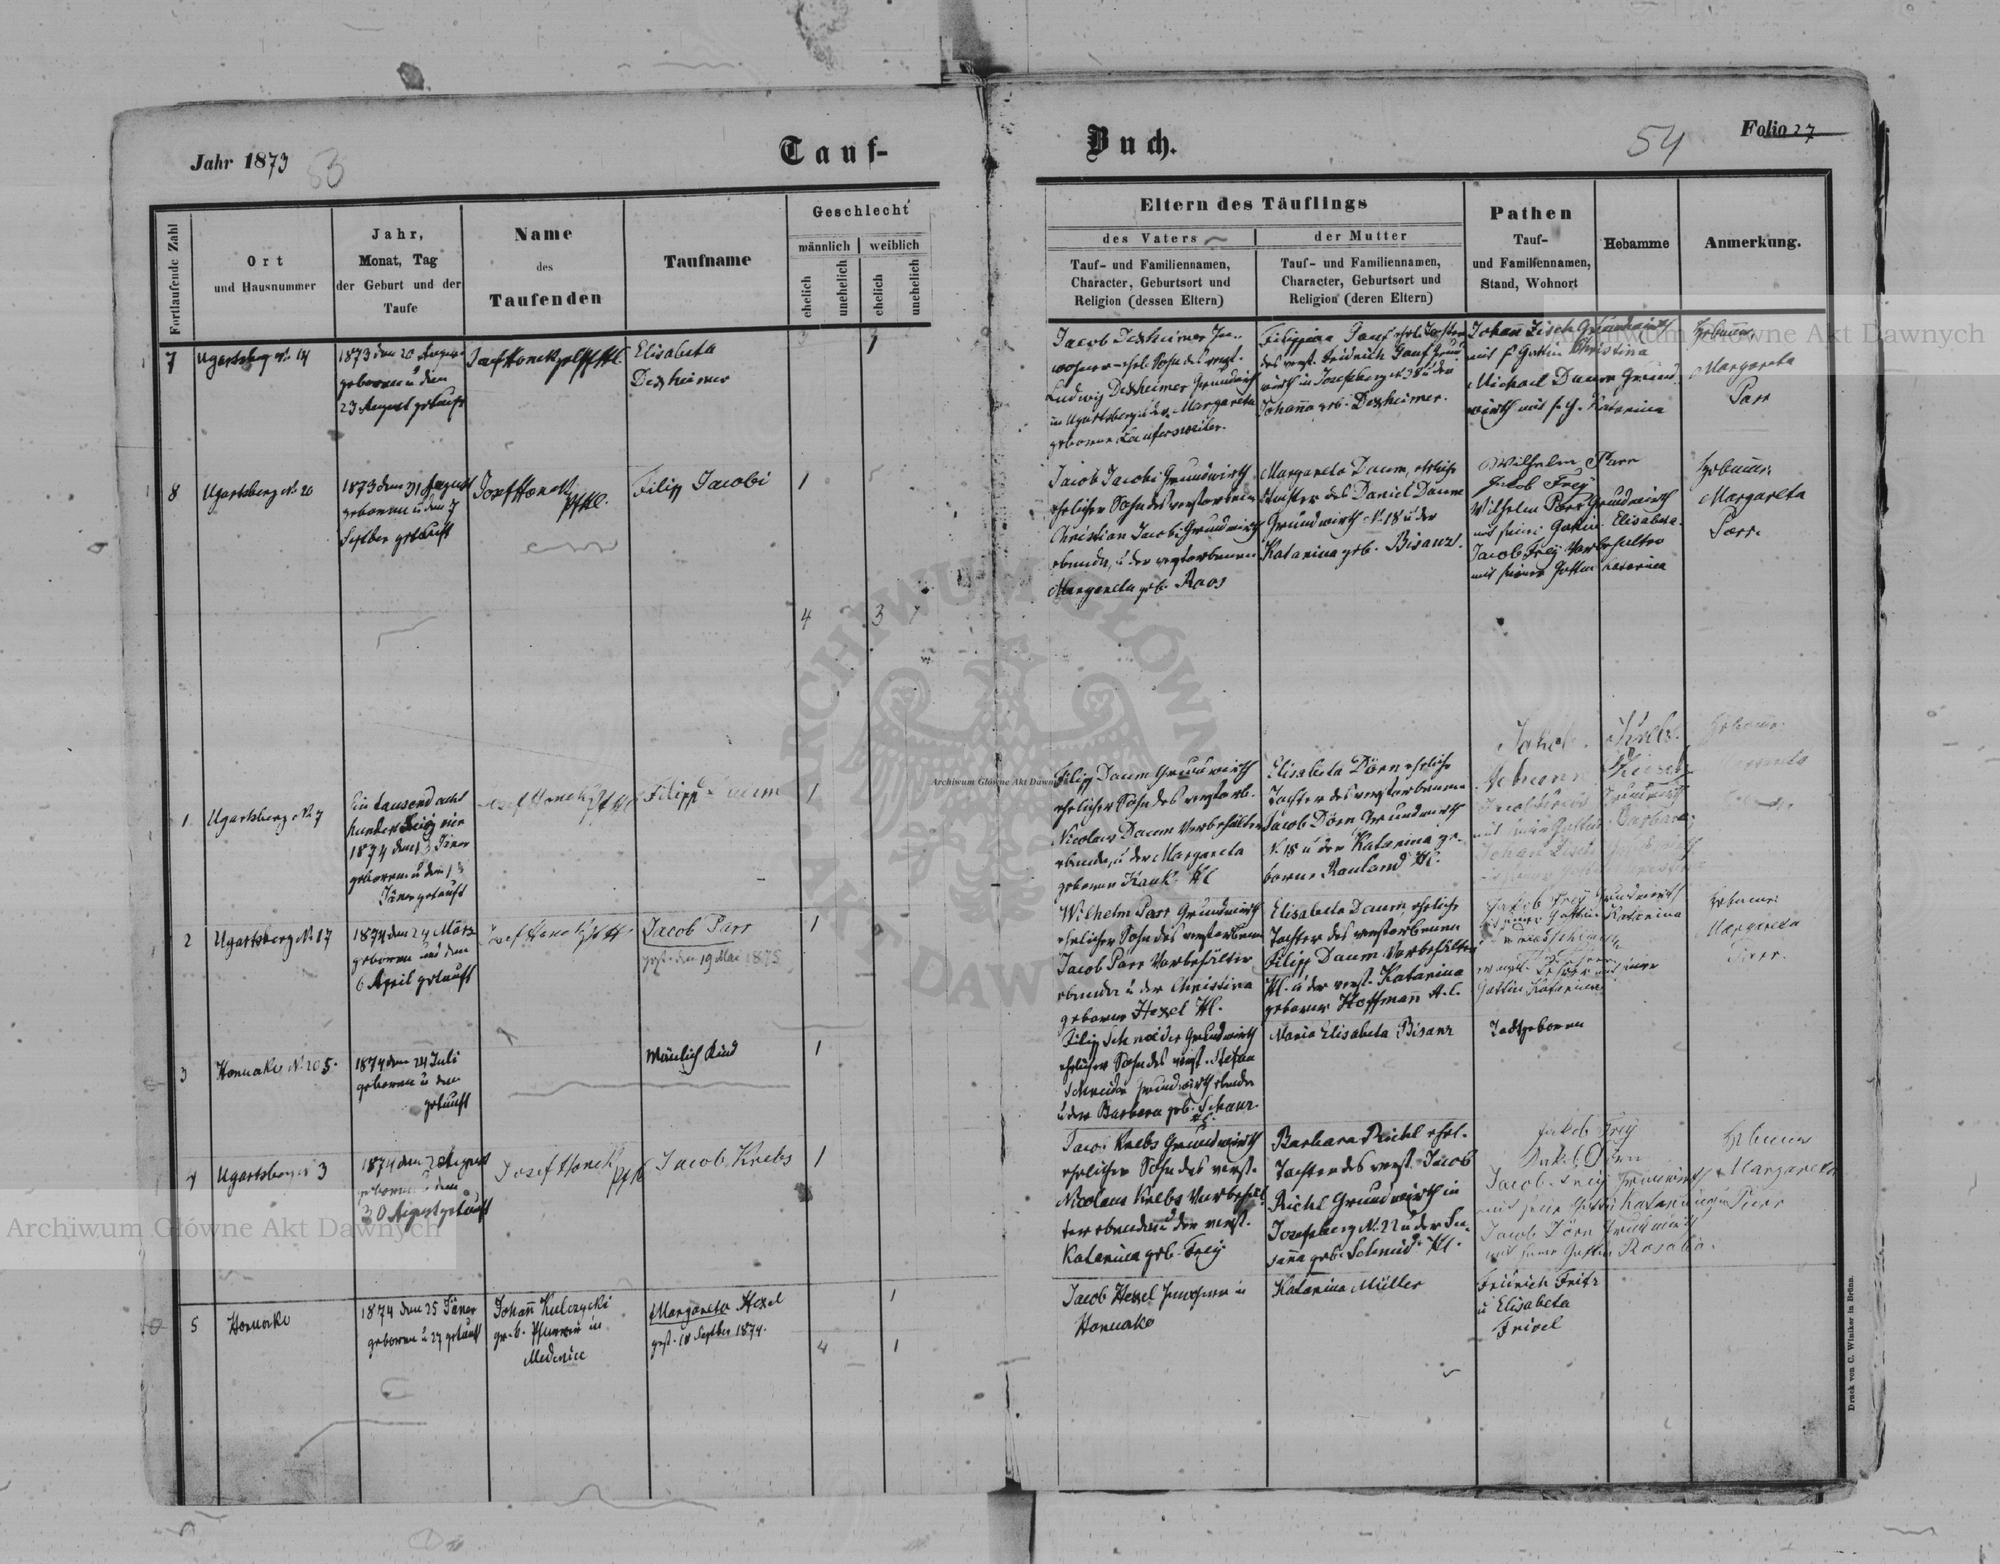 Jahr 1873
53
Tauf-
Buch.
54
Folio 27
Fortlaufende Zahl
Ort
und Hausnummer
Jahr,
Monat, Tag
der Geburt und der
Taufe
Name
des
Taufenden
Taufname
Geschlecht
männlich
weiblich
ehelich
unehelich
ehelich
unehelich
Eltern des Täuflings
des Vaters
der Mutter
Tauf- und Familiennamen,
Character, Geburtsort und
Religion (dessen Eltern)
Tauf- und Familiennamen,
Character, Geburtsort und
Religion (deren Eltern)
Pathen
Tauf-
und Familiennamen,
Stand, Wohnort
Hebamme
Anmerkung.
7
Ugartsberg N. 14
1873 den 20 August
geboren u den
23 August getauft
Josef Honek
Elisabeta
Dexheimer
1
Jacob Dexheimer In-
wohner ehel. Sohn des verst.
Ludwig Dexheimer Grundwirth
in Ugartsberg u der Margareta
geborne Laufersweiler.
Filippina Gauf ehel. Tochter
des verst. Fridrich Gauf Grund
wirth in Josefsberg N. 38 u der
Johanna geb. Dexheimer.
Johann Zisch Grundwirth
mit s. Gattin Christina
Michael Daum Grund
wirth mit s. G. Katarina
Hebamme
Margareta
Parr
8
Ugartsberg N. 20
1873 den 31 August
geboren u den 7
Septber getauft
Josef Honek
Filipp Jacobi
1
Jacob Jacobi Grundwirth
ehelicher Sohn des verstorbenen
Christian Jacobi Grundwirth
ebenda, u der verstorbenen
Margareta geb. Raos
Margareta Daum, eheliche
Tochter des Daniel Daum
Grundwirth N. 18 u der
Katarina geb. Bisanz.
Wilhelm Parr
Jakob Frey
Wilhelm Parr Grundwirth
mit seiner Gattin Elisabeta.
Jacob Frey Vorbehalter
mit seiner Gattin Katarina
Hebamme
Margareta
Parr.
4
3
1
Ugartsberg N. 7
Ein tausend acht
hundert vier
1874 den Jäner
geboren u den
Jäner getauft
Josef Honek
Filipp Daum
1
Filipp Daum Grundwirth
ehelicher Sohn des verstorb.
Nicolaus Daum Vorbehalter
ebenda, u der Margareta
geborne Kauk. HC
Elisabeta Dörn eheliche
Tochter des verstorbenen
Jacob Dörn Grundwirth
N. 18 u der Katarina ge-
borne Rauland HC.
Jakob Krebs.
Johann Zisch
Hebamme
2
Ugartsberg N. 17
1874 den 24 März
geboren und den
6 April getauft
Josef Honek
Jacob Parr
gest. den 19 Mai 1875
1
Wilhelm Parr Grundwirth
ehelicher Sohn des verstorbenen
Jacob Parr Vorbehalter
ebenda u der Christina
geborne Hexel HC.
Elisabeta Daum eheliche
Tochter des verstorbenen
Filipp Daum Vorbehalter
HC. u der verst. Katarina
geborne Hoffmann A.C.
Jakob Frey Grundwirth
mit seiner Gattin Katarina
Gattin Katarina
Hebamme
Margareta
Parr.
3
Horucko N. 205.
1874 den 24 Juli
geboren u den
getauft
Mänlich Kind
1
Filip Schneider Grundwirth
ehelicher Sohn des verst. Stefan
Schneider Grundwirth ebenda
u der Barbara geb. Schanz.
Maria Elisabeta Bisanz
Todtgeboren
4
Ugartsberg N. 3
1874 den 2 August
geboren u den
30 August getauft
Josef Honek
Jacob Krebs
1
Jacob Krebs Grundwirth
ehelicher Sohn des verst.
Nicolaus Krebs Vorbehal-
ter ebenda u der verst.
Katarina geb. Frey.
Barbara Richl ehel.
Tochter des verst. Jacob
Richl Grundwirth in
Josefsberg N. 22 u der Su-
sanna geb. Schmid. HC.
Jakob Frey
Jakob Dörn
Jacob Frey Grundwirth
mit seiner Gattin Katarina
Jacob Dörn Grundwirth
mit seiner Gattin Rosalia.
Hebamme
Margareta
Parr
5
Horucko
1874 den 25 Jäner
geboren u 27 getauft
Johann Kulczycki
gr. k. Pfarrer in
Medenice
Margareta Hexel
gest. 18 Septber 1874.
1
4
1
Jacob Hexel Inwohner in
Horucko
Katarina Müller
Fridrich Fritz
u Elisabeta
Frivel
Druck von C. Winiker in Brünn.
Archiwum Główne Akt Dawnych
Archiwum Główne Akt Dawnych
Archiwum Główne Akt Dawnych